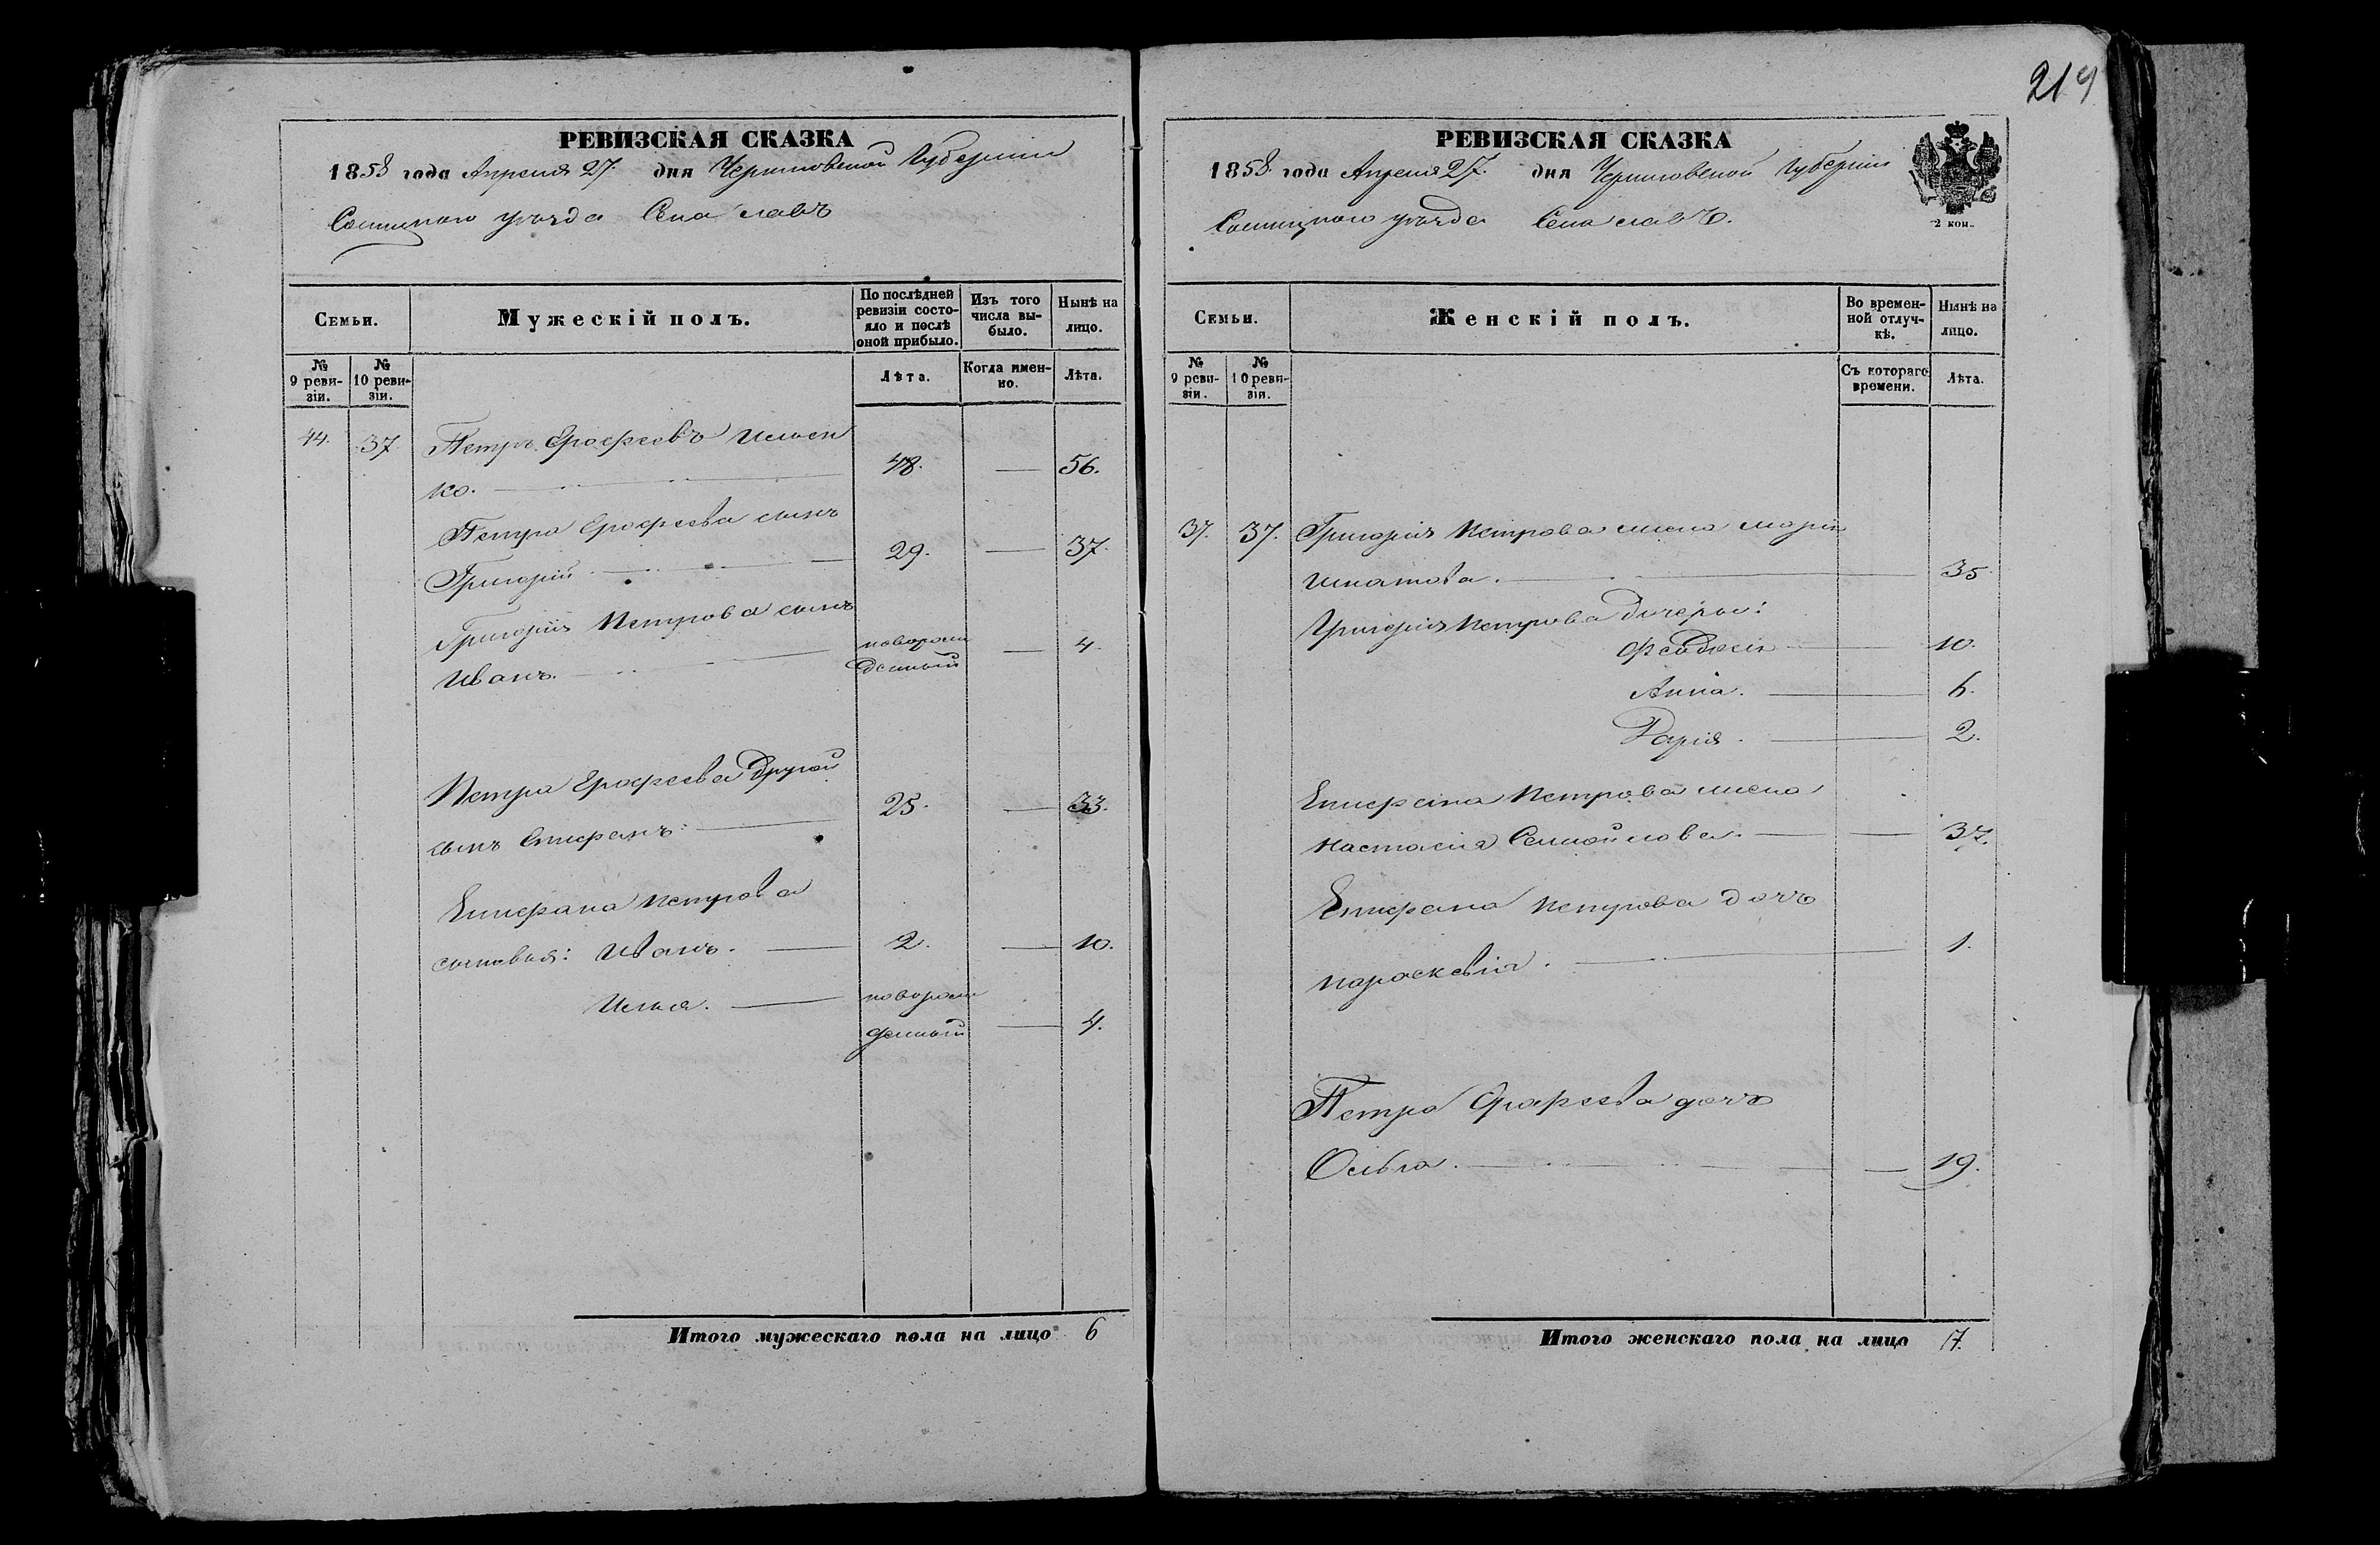 219
РЕВИЗСКАЯ СКАЗКА
1858 года Апреля 27. дня Черниговской Губернии
Сосницкого уѣзда Села
Семьи.
Мужескій полъ.
По послѣдней ревизіи состояло и послѣ оной прибыло.
Изъ того числа выбыло.
Нынѣ на лицо.
№ 9 ревизіи.
№ 10 ревизіи.
Лѣта.
Когда именно.
Лѣта.
44. 37. Петръ Ерофеевъ Ильен
ко. 48. — 56.
Петра Ерофеева сынъ
Григорій 29. — 37.
Григорія Петрова сынъ
Иванъ. новорож
денный — 4.
Петра Ерофеева другой
сынъ Епифанъ: 25. — 33.
Епифана Петрова
сыновья: Иванъ. 2. — 10.
Илья. новорож
денный — 4.
Итого мужескаго пола на лицо 6
РЕВИЗСКАЯ СКАЗКА
1858. года Апреля 27. дня Черниговской Губернии
2 коп.
Сосницкого уѣзда Села
Семьи.
Женскій полъ.
Во временной отлучкѣ.
Нынѣ на лицо.
№ 9 ревизіи.
№ 10 ревизіи.
Съ котораго времени.
Лѣта.
37. 37. Григорія Петрова жена Марія
Игнатова. 35.
Григорія Петрова дочеры:
Феодосія 10.
Анна. 6.
Дарія. 2.
Епифана Петрова жена
Настасия Самойлова. — 37.
Епифана Петрова дочъ
Параскевія. 1.
Петра Ерофеева дочъ
Ольга. — 19.
Итого женскаго пола на лицо 7.